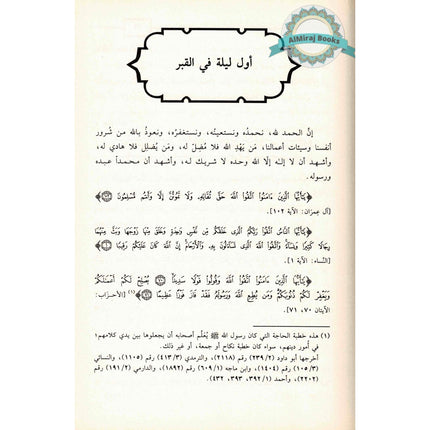 AlMiraj Books
أول ليلة في القبر
إنَّ الحمد لله، نحمدُه ونستعينُه، ونستغفرُه، ونعوذُ بالله من شرور
أنفسنا وسيئات أعمالنا، مَن يَهْدِ الله فلا مُضِل له، ومَن يُضلِل فلا هادي له،
وأشهد أن لا إله إلَّا الله وحده لا شريك له، وأشهد أن محمداً عبده
ورسوله.
﴿يَٰٓأَيُّهَا ٱلَّذِينَ ءَامَنُوا۟ ٱتَّقُوا۟ ٱللَّهَ حَقَّ تُقَاتِهِۦ وَلَا تَمُوتُنَّ إِلَّا وَأَنتُم مُّسْلِمُونَ ﴿١٠٢﴾﴾
[آل عِمرَان: الآية ١٠٢].
﴿يَٰٓأَيُّهَا ٱلنَّاسُ ٱتَّقُوا۟ رَبَّكُمُ ٱلَّذِى خَلَقَكُم مِّن نَّفْسٍ وَٰحِدَةٍ وَخَلَقَ مِنْهَا زَوْجَهَا وَبَثَّ مِنْهُمَا
رِجَالًا كَثِيرًا وَنِسَآءً وَٱتَّقُوا۟ ٱللَّهَ ٱلَّذِى تَسَآءَلُونَ بِهِۦ وَٱلْأَرْحَامَ إِنَّ ٱللَّهَ كَانَ عَلَيْكُمْ رَقِيبًا ﴿١﴾﴾
[النِّساء: الآية ١].
﴿يَٰٓأَيُّهَا ٱلَّذِينَ ءَامَنُوا۟ ٱتَّقُوا۟ ٱللَّهَ وَقُولُوا۟ قَوْلًا سَدِيدًا ﴿٧٠﴾ يُصْلِحْ لَكُمْ أَعْمَٰلَكُمْ
وَيَغْفِرْ لَكُمْ ذُنُوبَكُمْ وَمَن يُطِعِ ٱللَّهَ وَرَسُولَهُۥ فَقَدْ فَازَ فَوْزًا عَظِيمًا ﴿٧١﴾﴾(١) [الأحزَاب:
الآيتان ٧٠، ٧١].
(١) هذه خطبة الحاجة التي كان رسول الله ﷺ يُعلِّم أصحابه أن يجعلوها بين يدي كلامهم؛
في أمور دينهم، سواء كان خطبة نكاح أو جمعة، أو غير ذلك.
أخرجها أبو داود (٢/٢٣٩) رقم (٢١١٨)، والترمذي (٣/٤١٣) رقم (١١٠٥)، والنسائي
(٣/١٠٥) رقم (١٤٠٤)، وابن ماجه (١/٦٠٩) رقم (١٨٩٢)، والدارمي (٢/١٩١) رقم
(٢٢٠٢)، وأحمد (١/٣٩٢، ٣٩٣، ٤٣٢).